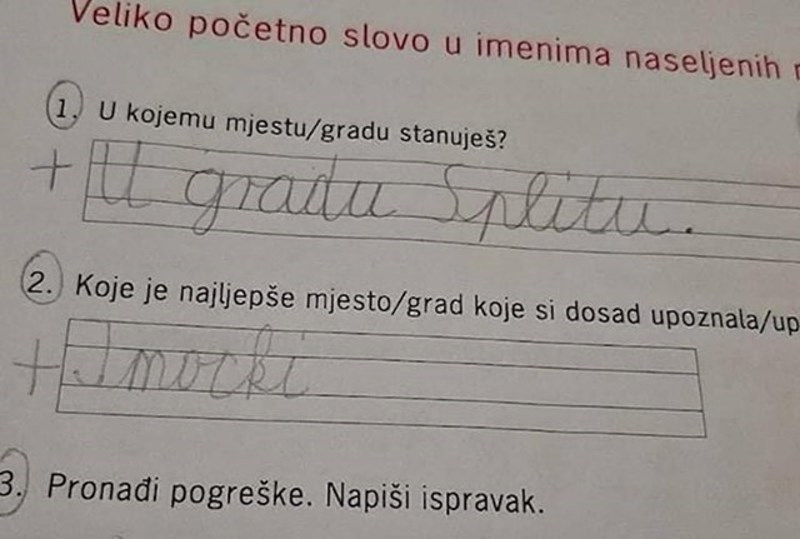 Veliko početno slovo u imenima naseljenih
1. U kojemu mjestu/gradu stanuješ?
+ U gradu Splitu.
2. Koje je najljepše mjesto/grad koje si dosad upoznala/up
+ Imocki
3. Pronađi pogreške. Napiši ispravak.